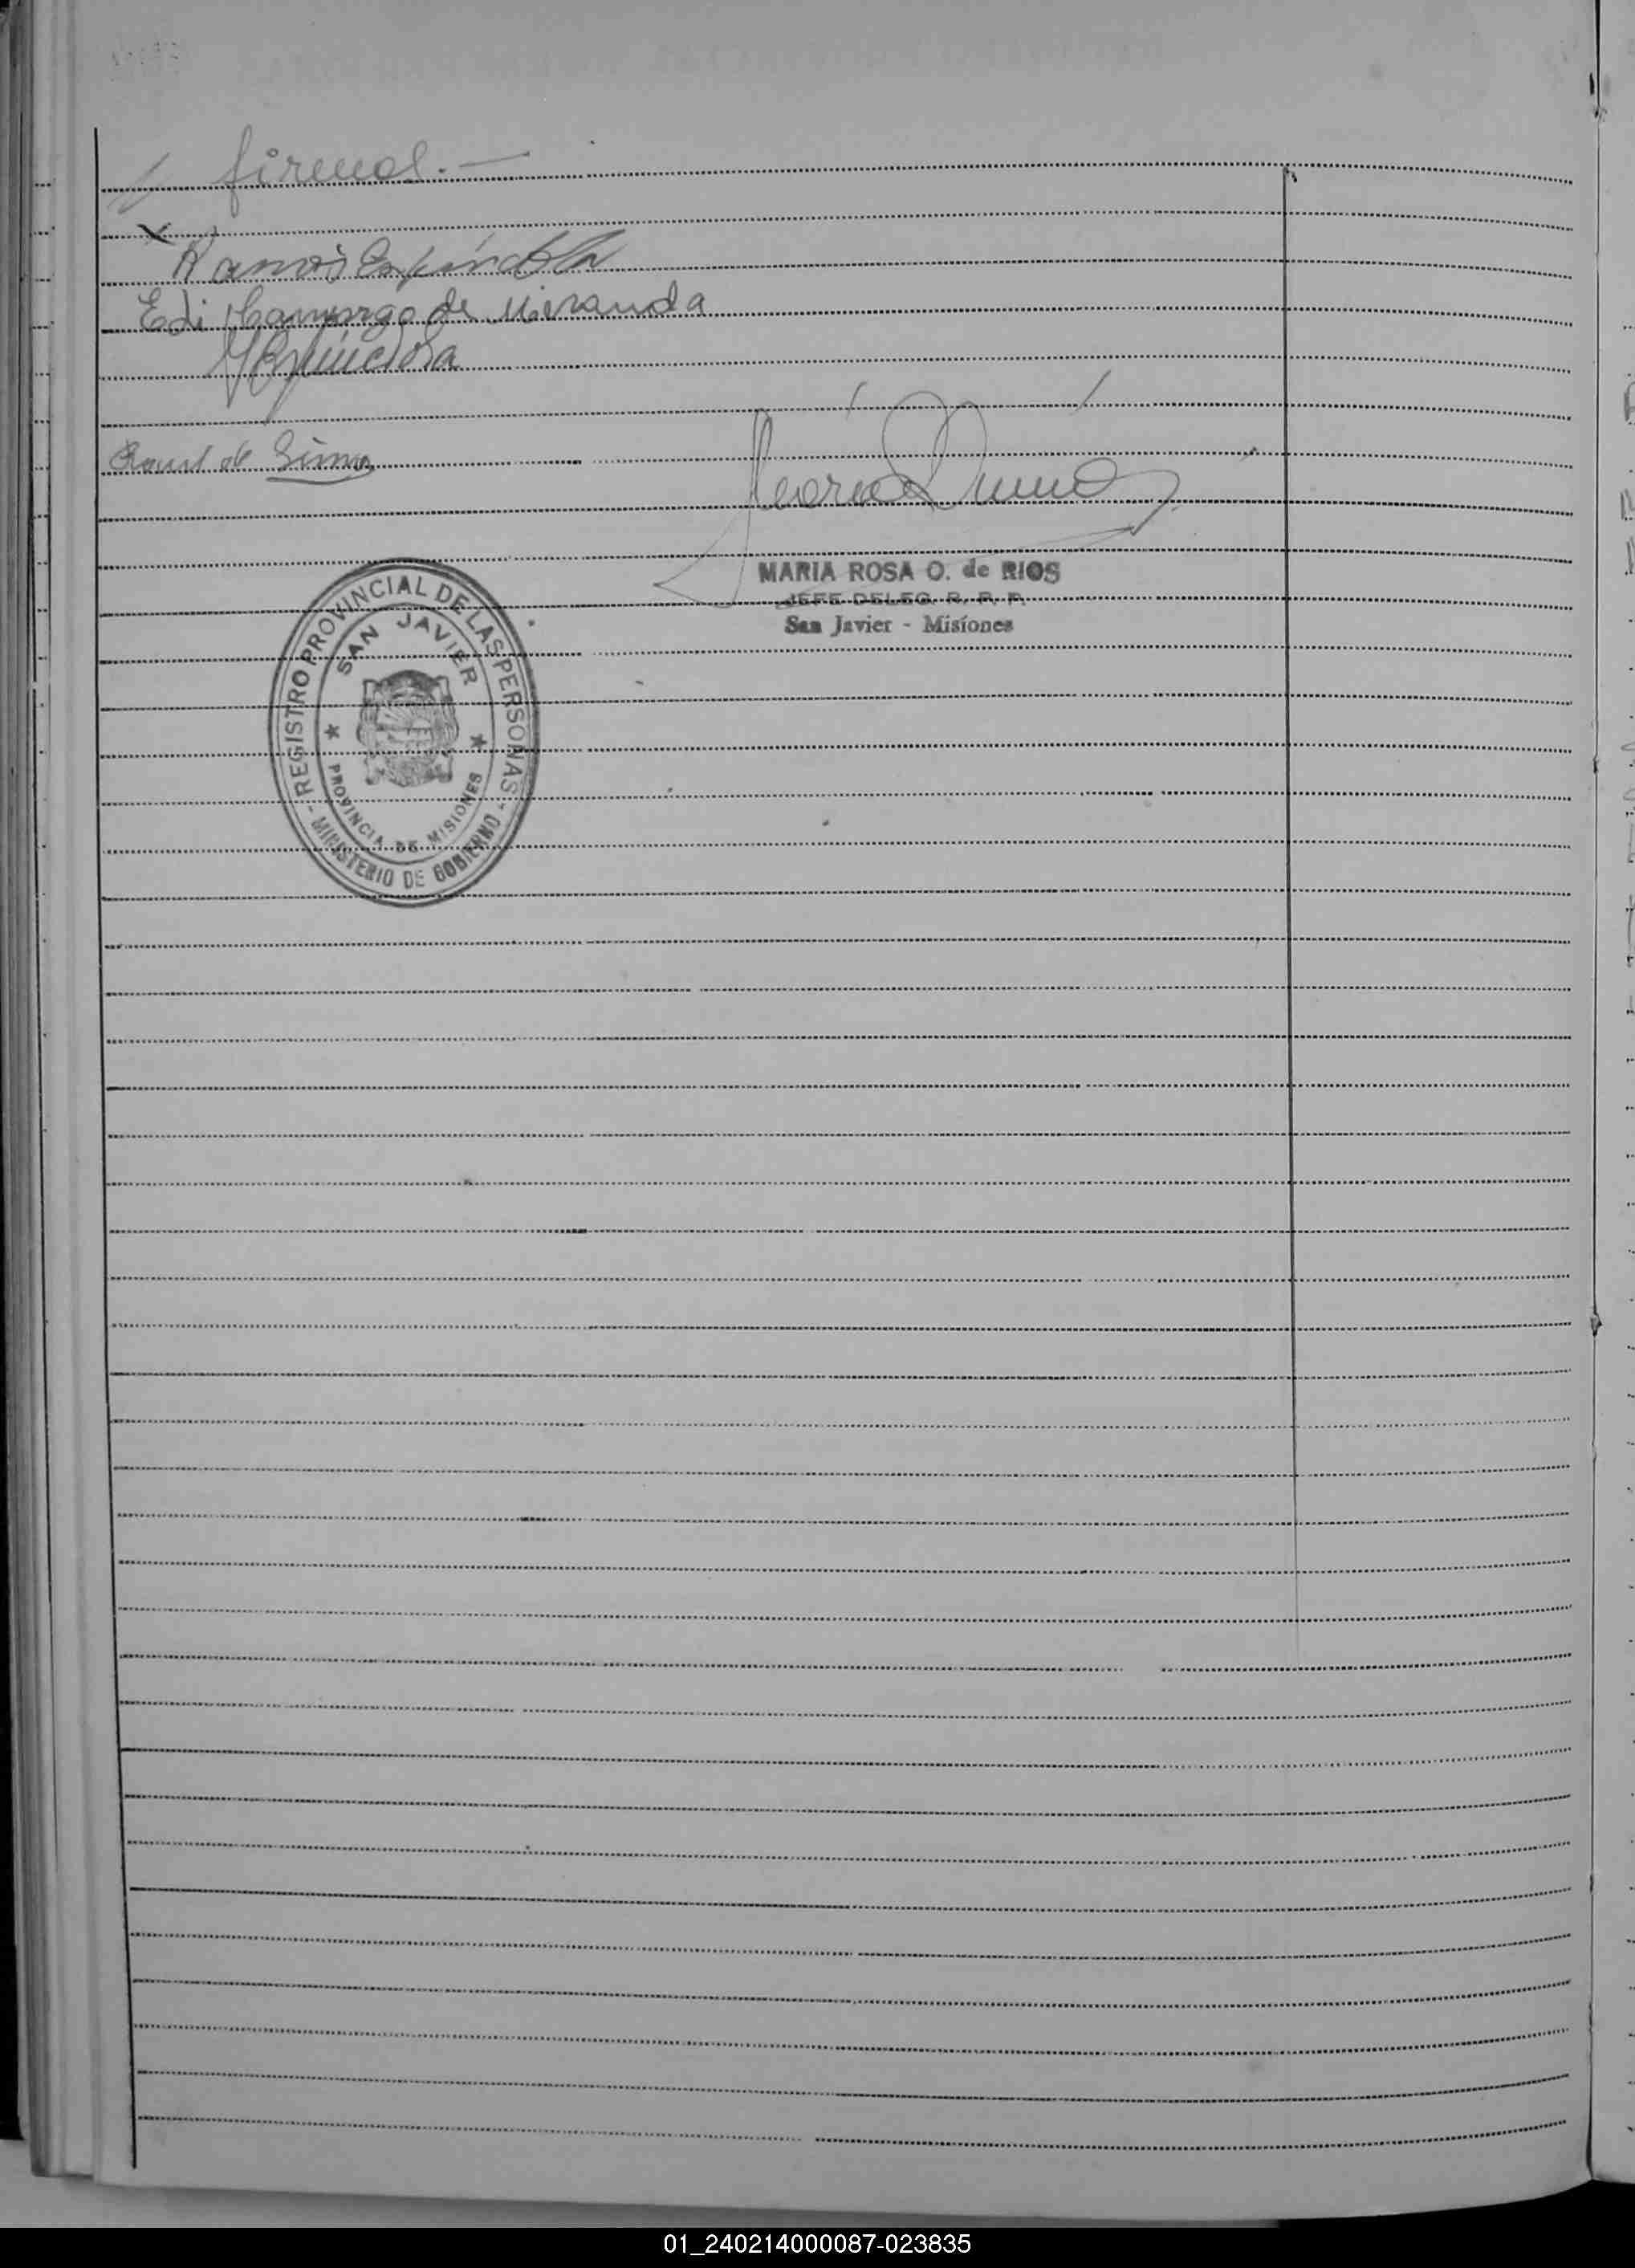 // firmas.—
x
Ramon Espindola
Edi Camargo de Miranda
Espindola
Raul de Lima
MARIA ROSA O. de RIOS
JEFE DELEG. R. P. P.
San Javier - Misiones
- REGISTRO PROVINCIAL DE LAS PERSONAS -
SAN JAVIER
PROVINCIA DE MISIONES
MINISTERIO DE GOBIERNO
01_240214000087-023835